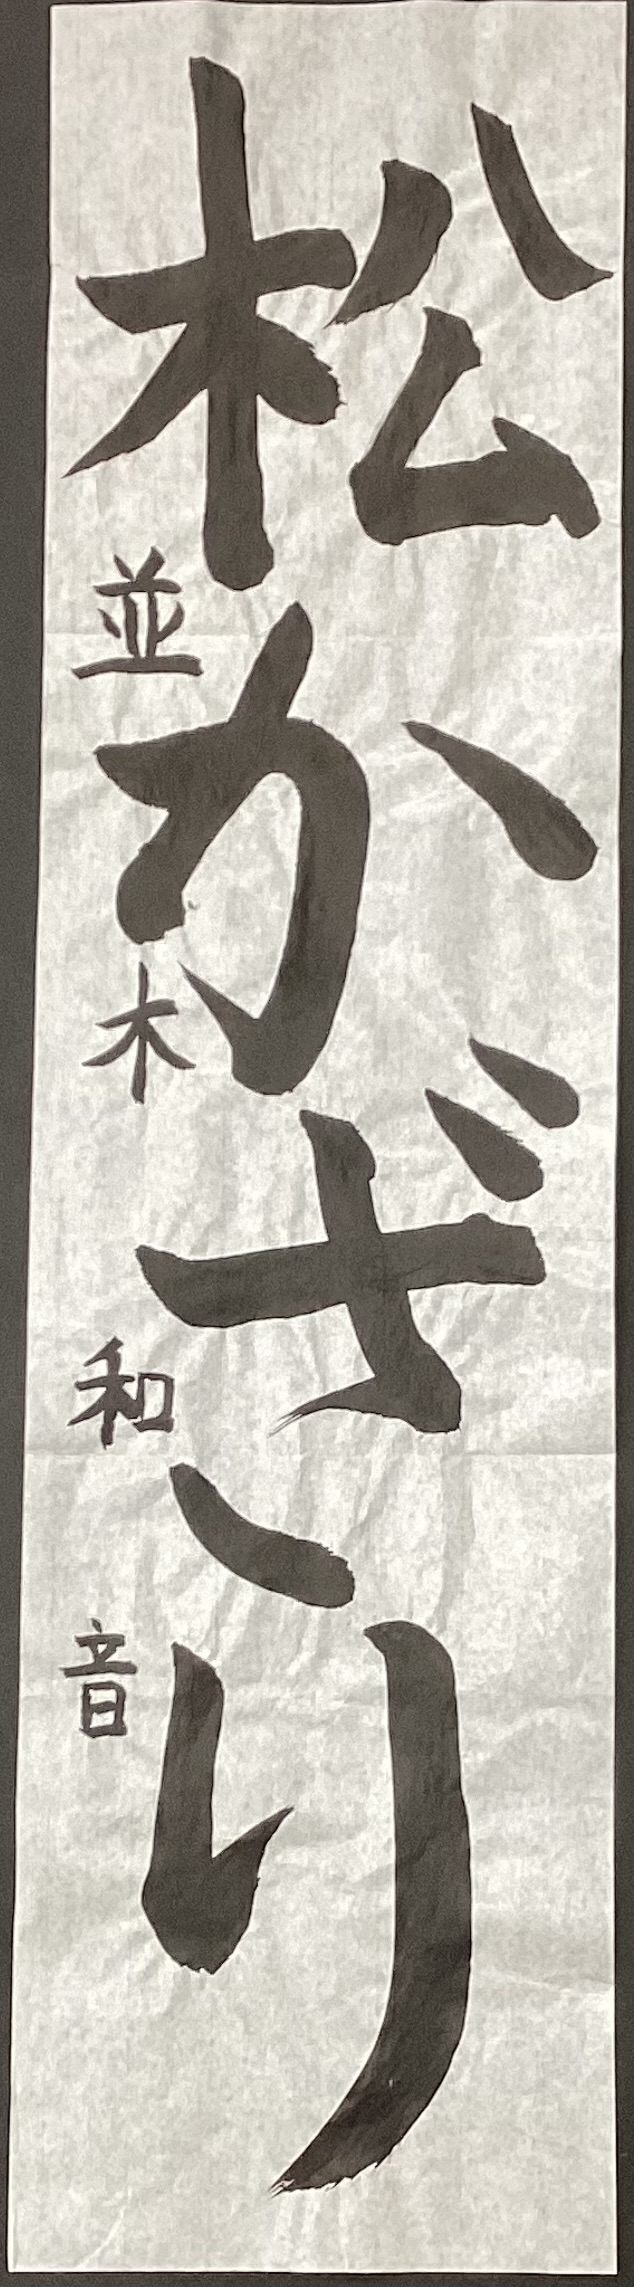 松かざり
並木和音